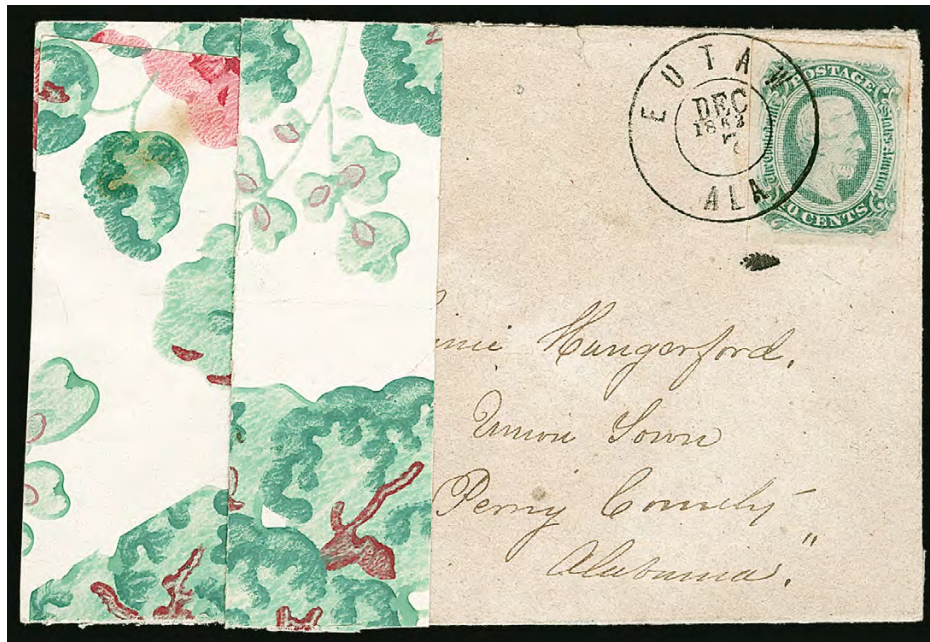 EUTAW
DEC
ALA
POSTAGE
The Confederate States of America
CENTS
Hungerford,
Union Town
Perry County
Alabama."